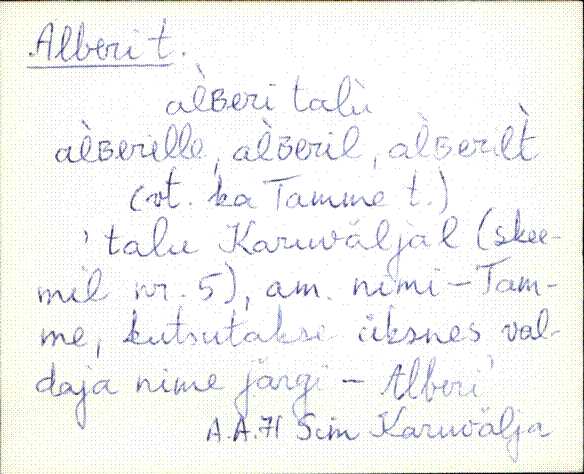 Alberi t.
al̀ʙeri talù
al̀ʙerille, al̀ʙeril, al̀ʙerilt̀
(vt. ka Tamme t.)
' talu Karuväljal (skee-
mil nr. 5), am. nimi – Tam-
me, kutsutakse üksnes val-
daja nime järgi – Alberi '
A.A. 71 Sim Karuvälja